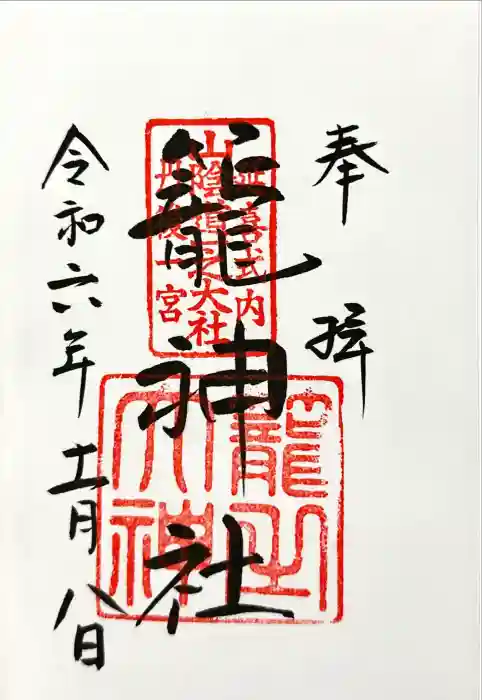 奉拝
延喜式内
山陰道之大社
丹後一宮
籠神社
籠之大神
令和六年十一月八日